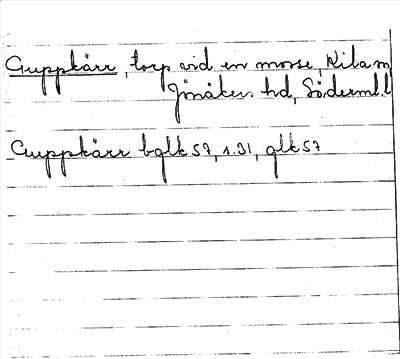 Guppkärr, torp vid en mosse, Kila sn
Jönåkers hd, Söderml. l
Guppkärr bglk 57, 1.31, glk 57